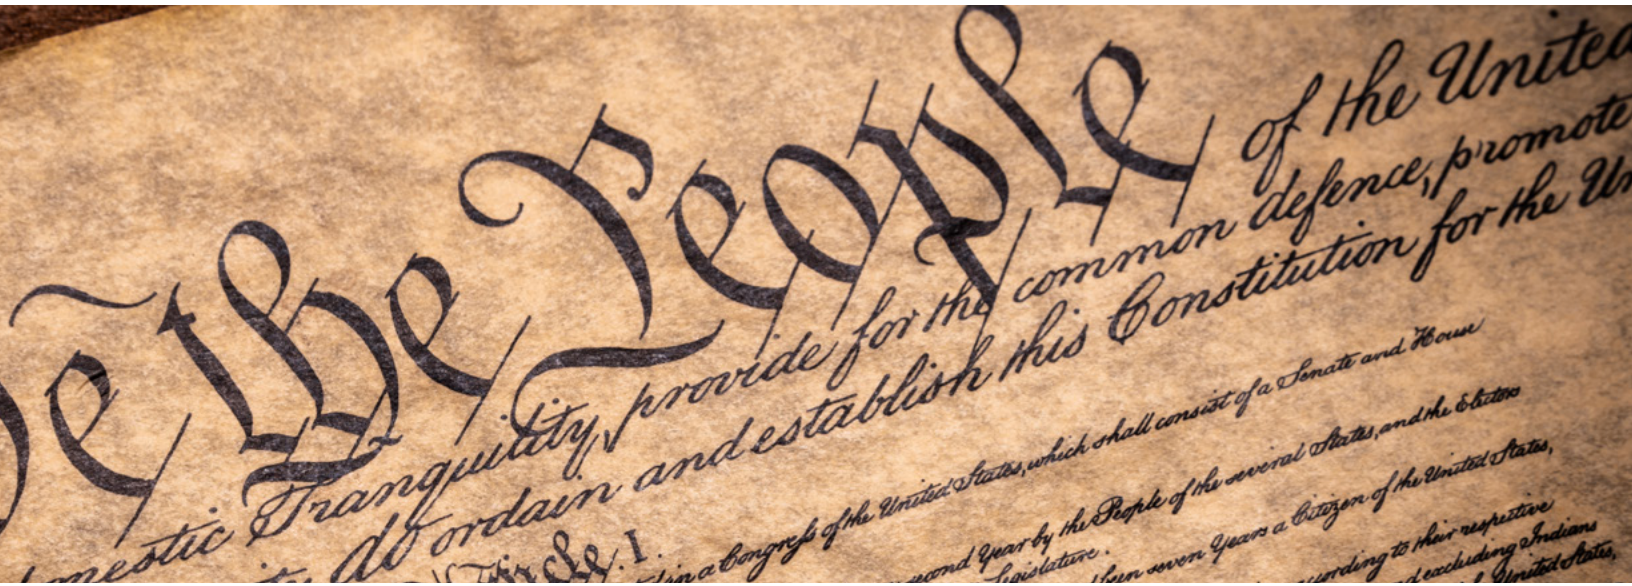 We the People of the United
omestic Tranquility, provide for the common defence, promote
do ordain and establish this Constitution for the Un
Article. I.
in a Congress of the United States, which shall consist of a Senate and House
second Year by the People of the several States, and the Electors
Legislature.
been seven Years a Citizen of the United States,
according to their respective
excluding Indians
United States,